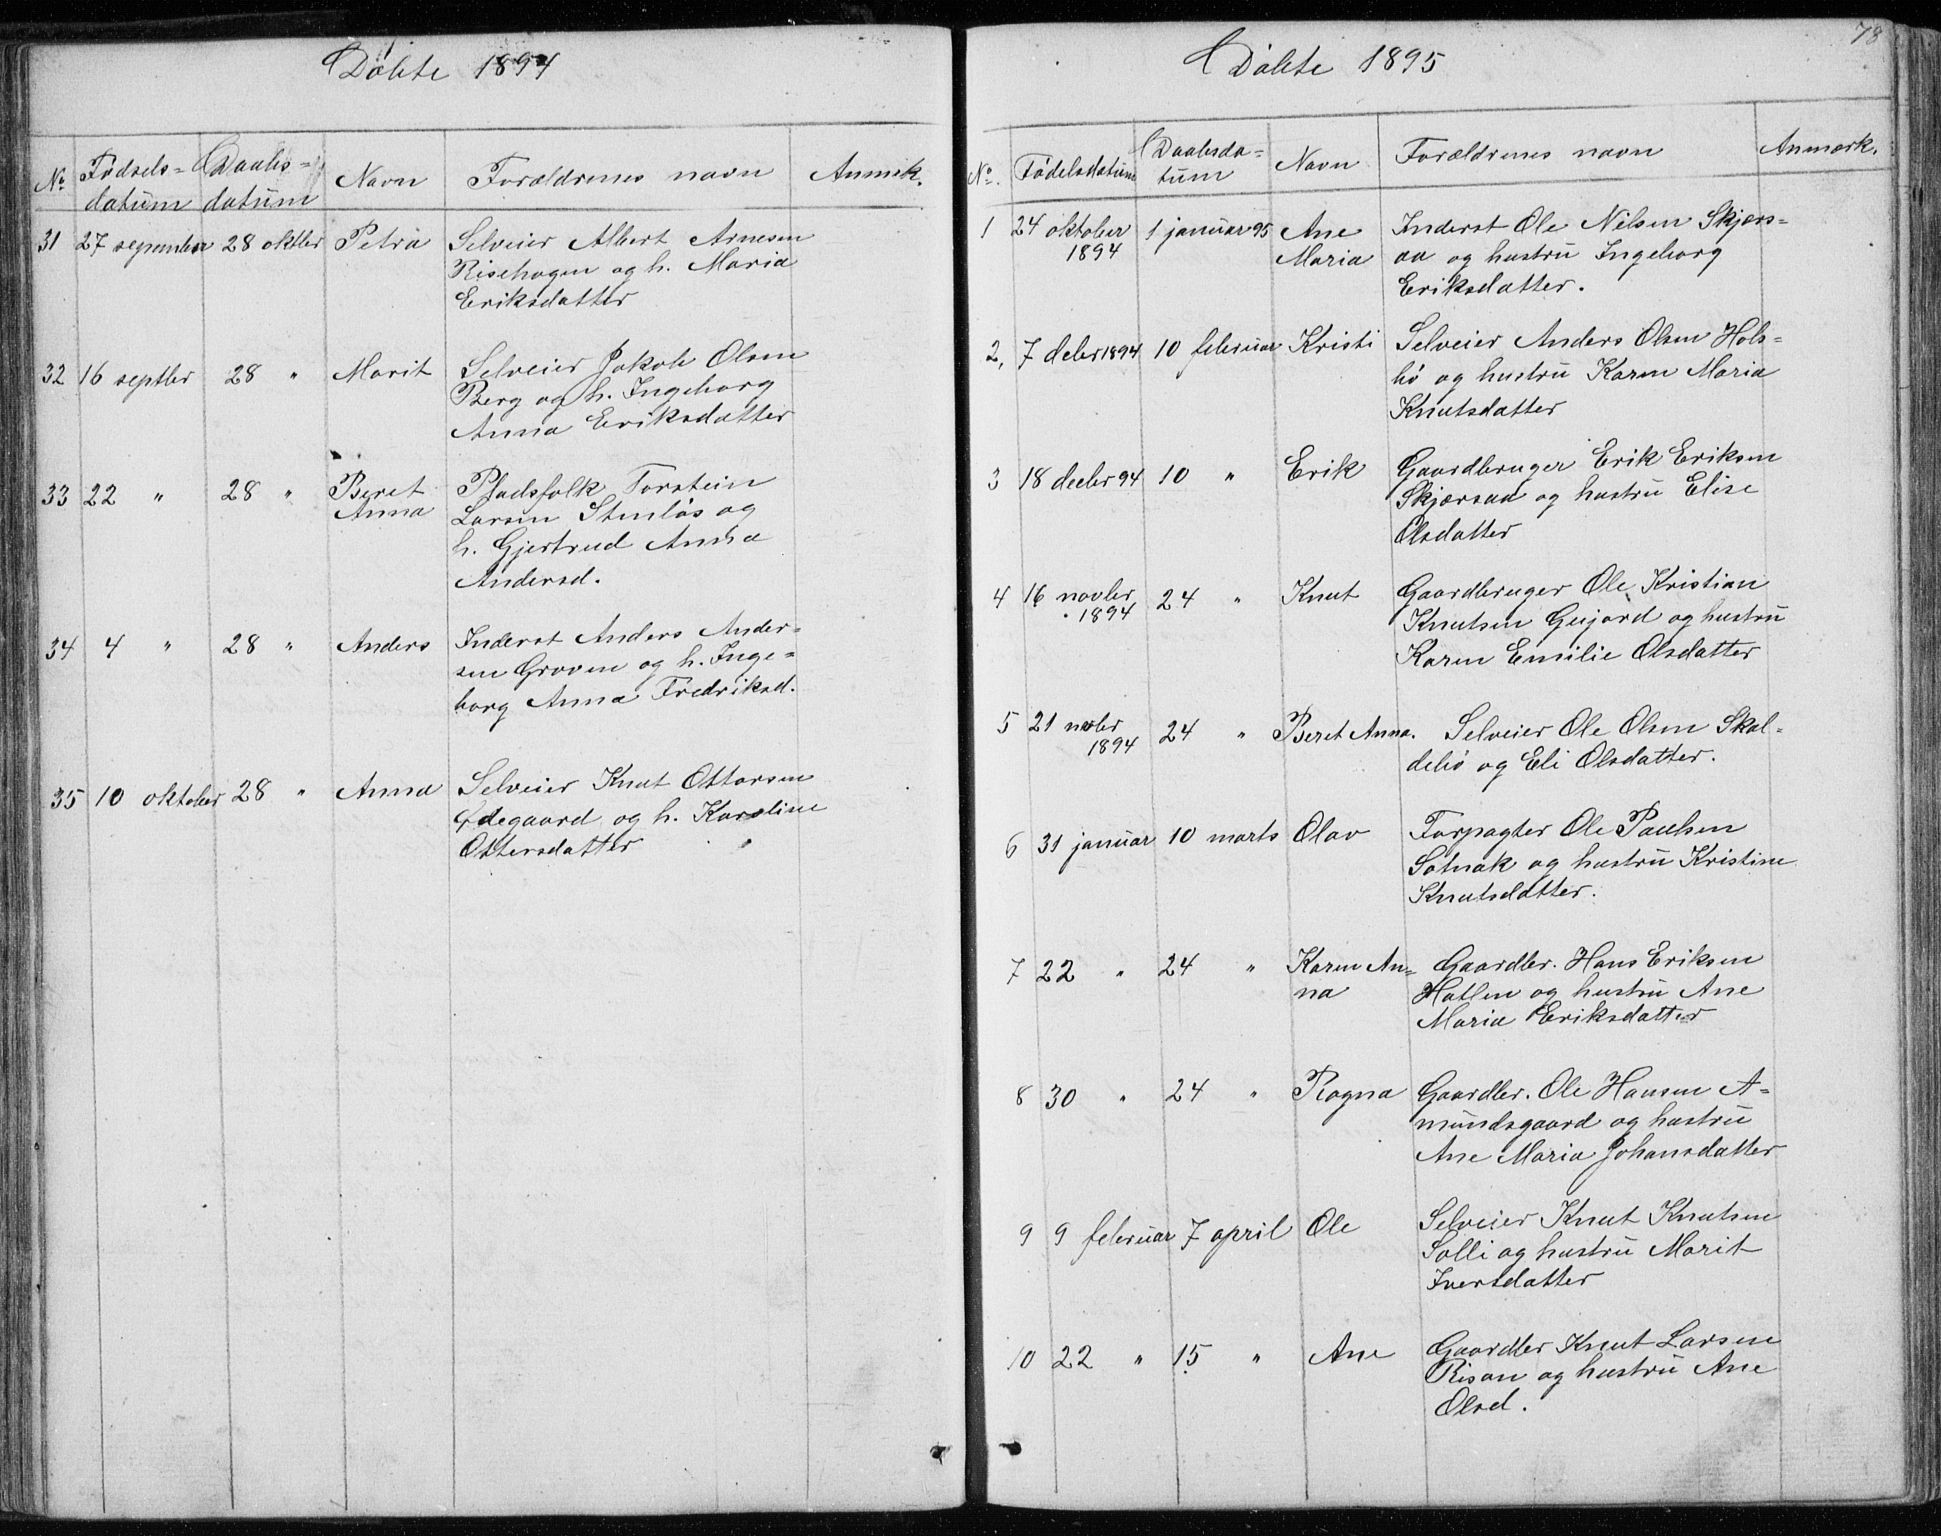 Døbte 1894
No Fødsels= datum Daabs= datum Navn Forældrenes navn Anmrk.
31 27 september 28 oktber Petra Selveier Albert Arnesen
Risehagen og h. Maria
Eriksdatter
32 16 septber 28 " Marit Selveier Jakob Olsen
Berg og h. Ingeborg
Anna Eriksdatter
33 22 " 28 " Beret Pladsfolk Torstein
Anna Larsen Stenløs og
h. Gjertrud Anna
Andersd.
34 4 " 28 " Anders Inderst Anders Ander=
sen Groven og h. Inge=
borg Anna Fredriksd.
35 10 oktober 28 " Anna Selveier Knut Ottarsen
Ødegaard og h. Karoline
Ottersdatter
78
Døbte 1895
No. Fødelsdatum Daabsda= tum Navn Forældrenes navn Anmærk.
1 24 oktober 1 januar 95 Ane Inderst Ole Nilsen Skjærs=
1894 Maria aa og hustru Ingeborg
Eriksdatter.
2, 7 debr 1894 10 februar Kristi Selveier Anders Olsen Hols=
bø og hustru Karen Maria
Knutsdatter
3 18 decbr 94 10 " Erik Gaardbruger Erik Eriksen
Skjærsaa og hustru Elise
Olsdatter
4 16 novbr 24 " Knut Gaardbruger Ole Kristian
1894 Knutsen Gujord og hustru
Karen Emilie Olsdatter
5 21 novbr 24 " Beret Anna. Selveier Ole Olsen Skal=
1894 debø og Eli Olsdatter.
6 31 januar 10 marts Olav Forpagter Ole Paulsen
Sotnak og hustru Kristine
Knutsdatter.
7 22 " 24 " Karen An= Gaardbr. Hans Eriksen
na Hatlen og hustru Ane
Maria Eriksdatter
8 30 " 24 " Ragna Gaardbr. Ole Hansen A=
mundsgaard og hustru
Ane Maria Johansdatter
9 9 februar 7 april Ole Selveier Knut Knutsen
Solli og hustru Marit
Iversdatter
10 22 " 15 " Ane Gaardbr Knut Larsen
Risan og hustru Ane
Olsd.